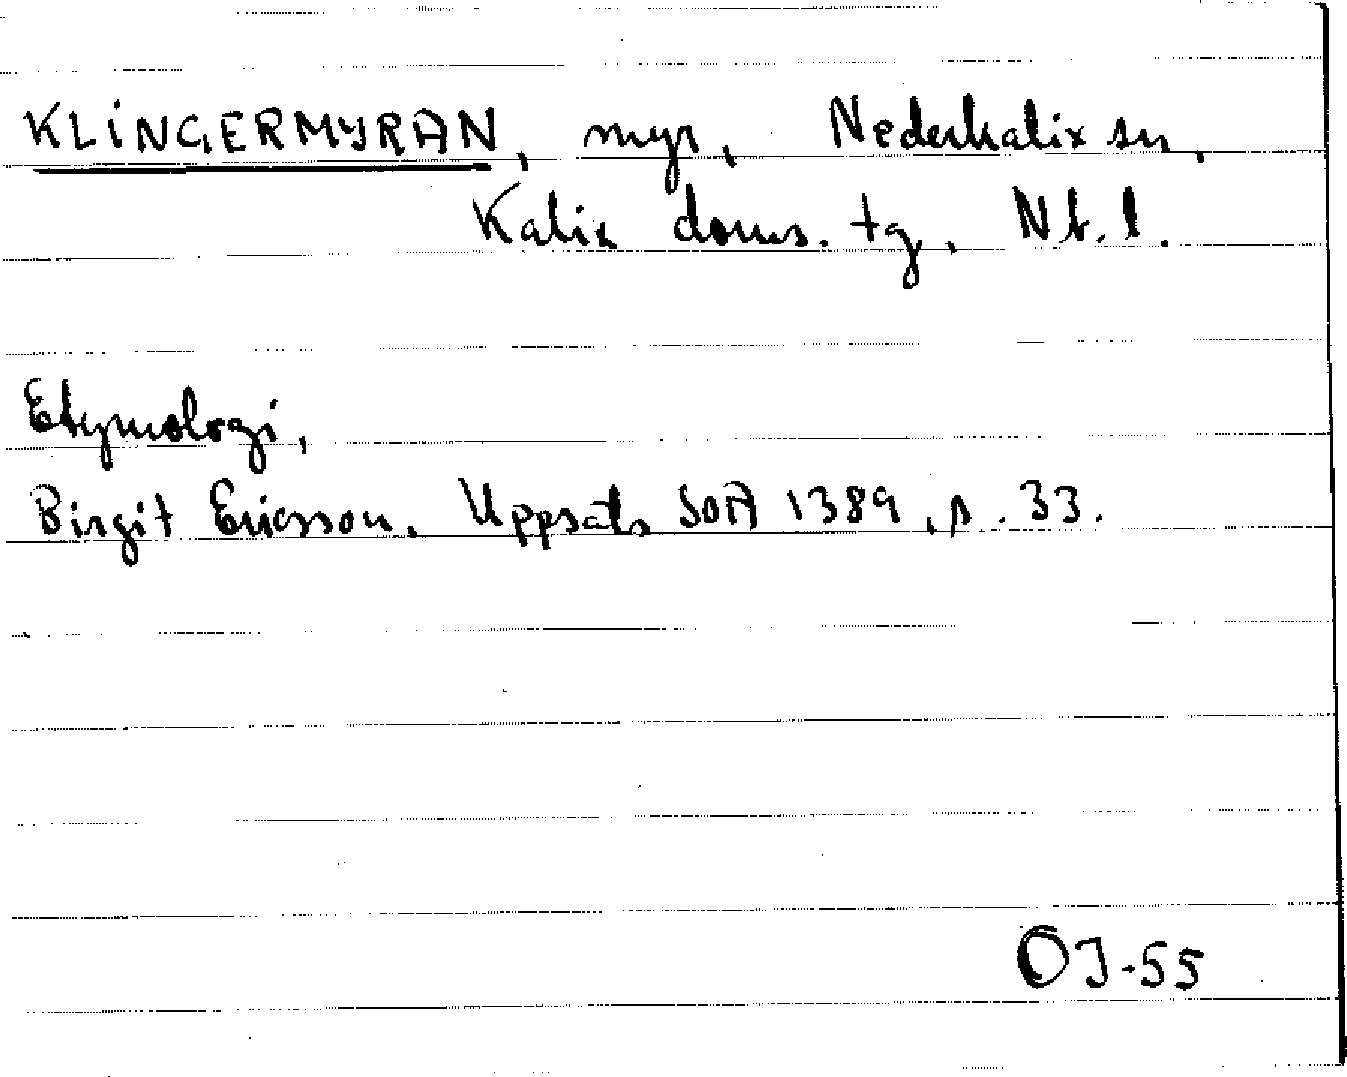 KLINGERMYRAN, myr, Nederkalix sn,
Kalix doms. tg, Nb. l.
Etymologi,
Birgit Ericsson. Uppsats SOA 1389, s. 33.
OJ-55